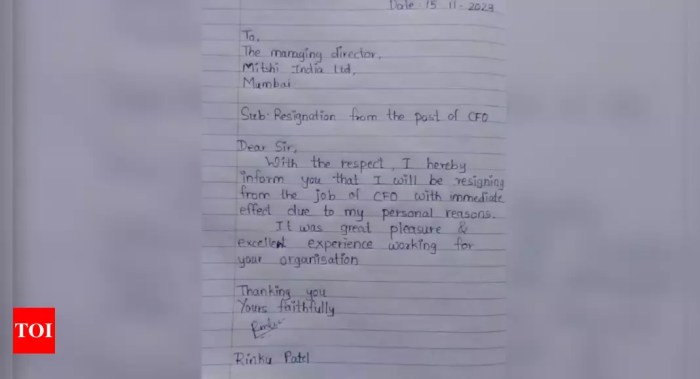 Date 15-11-2023
To,
The managing director,
Mitshi India Ltd,
Mumbai
Sub:Resignation from the post of CFO
Dear Sir,
With the respect, I hereby
inform you that I will be resigning
from the job of CFO with immediate
effect due to my personal reasons.
It was great pleasure &
excellent experience working for
your organisation
Thanking you
Yours faithfully
Rinku Patel
TOI